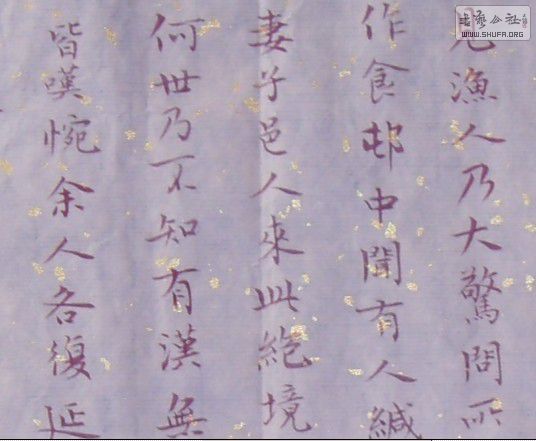 見漁人乃大驚問所
作食邨中聞有人緘
妻子邑人來此絕境
何世乃不知有漢無
皆嘆惋余人各復延
书法公社
WWW.SHUFA.ORG